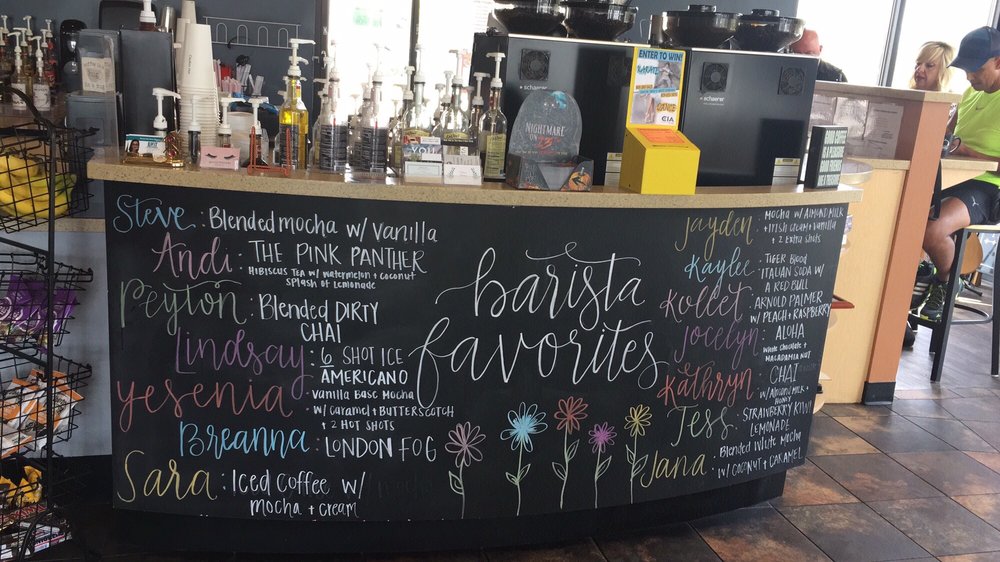 ENTER TO WIN!
KARATE
CIA
schaerer
schaerer
NIGHTMARE
ON
YOU
Steve : Blended mocha w/ vanilla
Andi : THE PINK PANTHER
HIBISCUS TEA w/ watermelon + coconut
SPLASH OF Lemonade
Peyton : Blended DIRTY
CHAI
Lindsay : 6 SHOT ICE
AMERICANO
yesenia : Vanilla Base Mocha
w/ Caramel + BUTTERSCOTCH
+ 2 HOT SHOTS
Breanna : LONDON FOG
Sara : Iced Coffee w/
mocha + cream
barista
favorites
Jayden : MOCHA w/ ALMOND MILK
+ IRISH Cream + Vanilla
+ 2 EXTRA SHOTS
Kaylee : TIGER Blood
ITALIAN SODA w/
A RED BULL
Kollet : ARNOLD PALMER
w/ PEACH + RASPBERRY
Jocelyn : ALOHA
White Chocolate +
MACADAMIA NUT
Kathryn : CHAI
w/ Almond Milk +
HONEY
Tess : STRAWBERRY KIWI
LEMONADE
Jana : Blended White Mocha
w/ COCONUT + CARAMEL